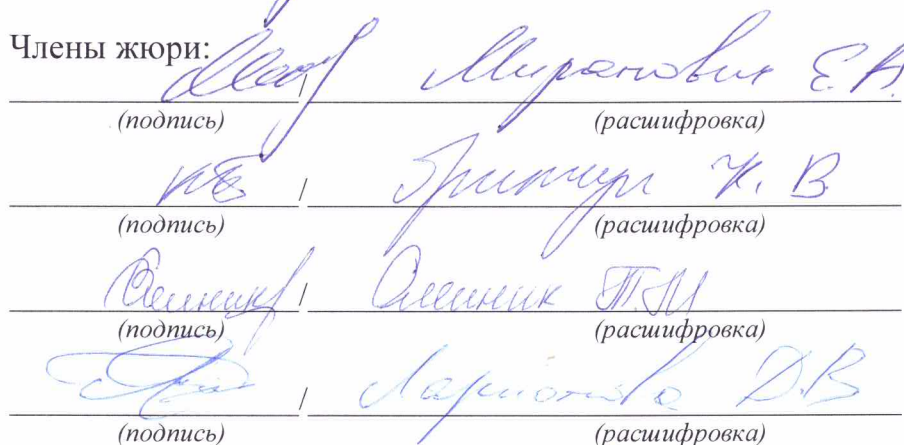 Члены жюри:
/ Миранович Е.А.
(подпись) (расшифровка)
/ К. В.
(подпись) (расшифровка)
Олейник / Олейник Т.М
(подпись) (расшифровка)
/ Ларионова Д.В
(подпись) (расшифровка)